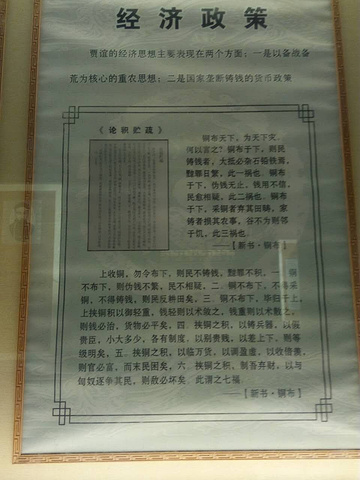 经济政策
贾谊的经济思想主要表现在两个方面：一是以备战备
荒为核心的重农思想；二是国家垄断铸钱的货币政策
《论积贮疏》
铜布天下，为天下灾，
何以言之？铜布于下，则民
铸钱者，大抵必杂石铅铁焉，
黥罪日繁，此一祸也。铜布
于下，伪钱无止，钱用不信，
民愈相疑，此二祸也。铜布
于下，采铜者弃其田畴，家
铸者损其农事，谷不为则邻
于饥，此三祸也。
——【新书·铜布】
上收铜，勿令布下，则民不铸钱，黥罪不积，一。铜
不布下，则伪钱不繁，民不相疑，二。铜不布下，不得采
铜，不得铸钱，则民反耕田矣，三。铜不布下，毕归于上，
上挟铜积以御轻重，钱轻则以术敛之，钱重则以术散之，
则钱必治，货物必平矣，四。挟铜之积，以铸兵器，以假
贵臣，小大多少，各有制度，以别贵贱，以差上下，则等
级明矣，五。挟铜之积，以临万货，以调盈虚，以收倍羡，
则官必富，而末民困矣，六。挟铜之积，制吾弃财，以与
匈奴逐争其民，则敌必坏矣。此谓之七福
——【新书·铜布】